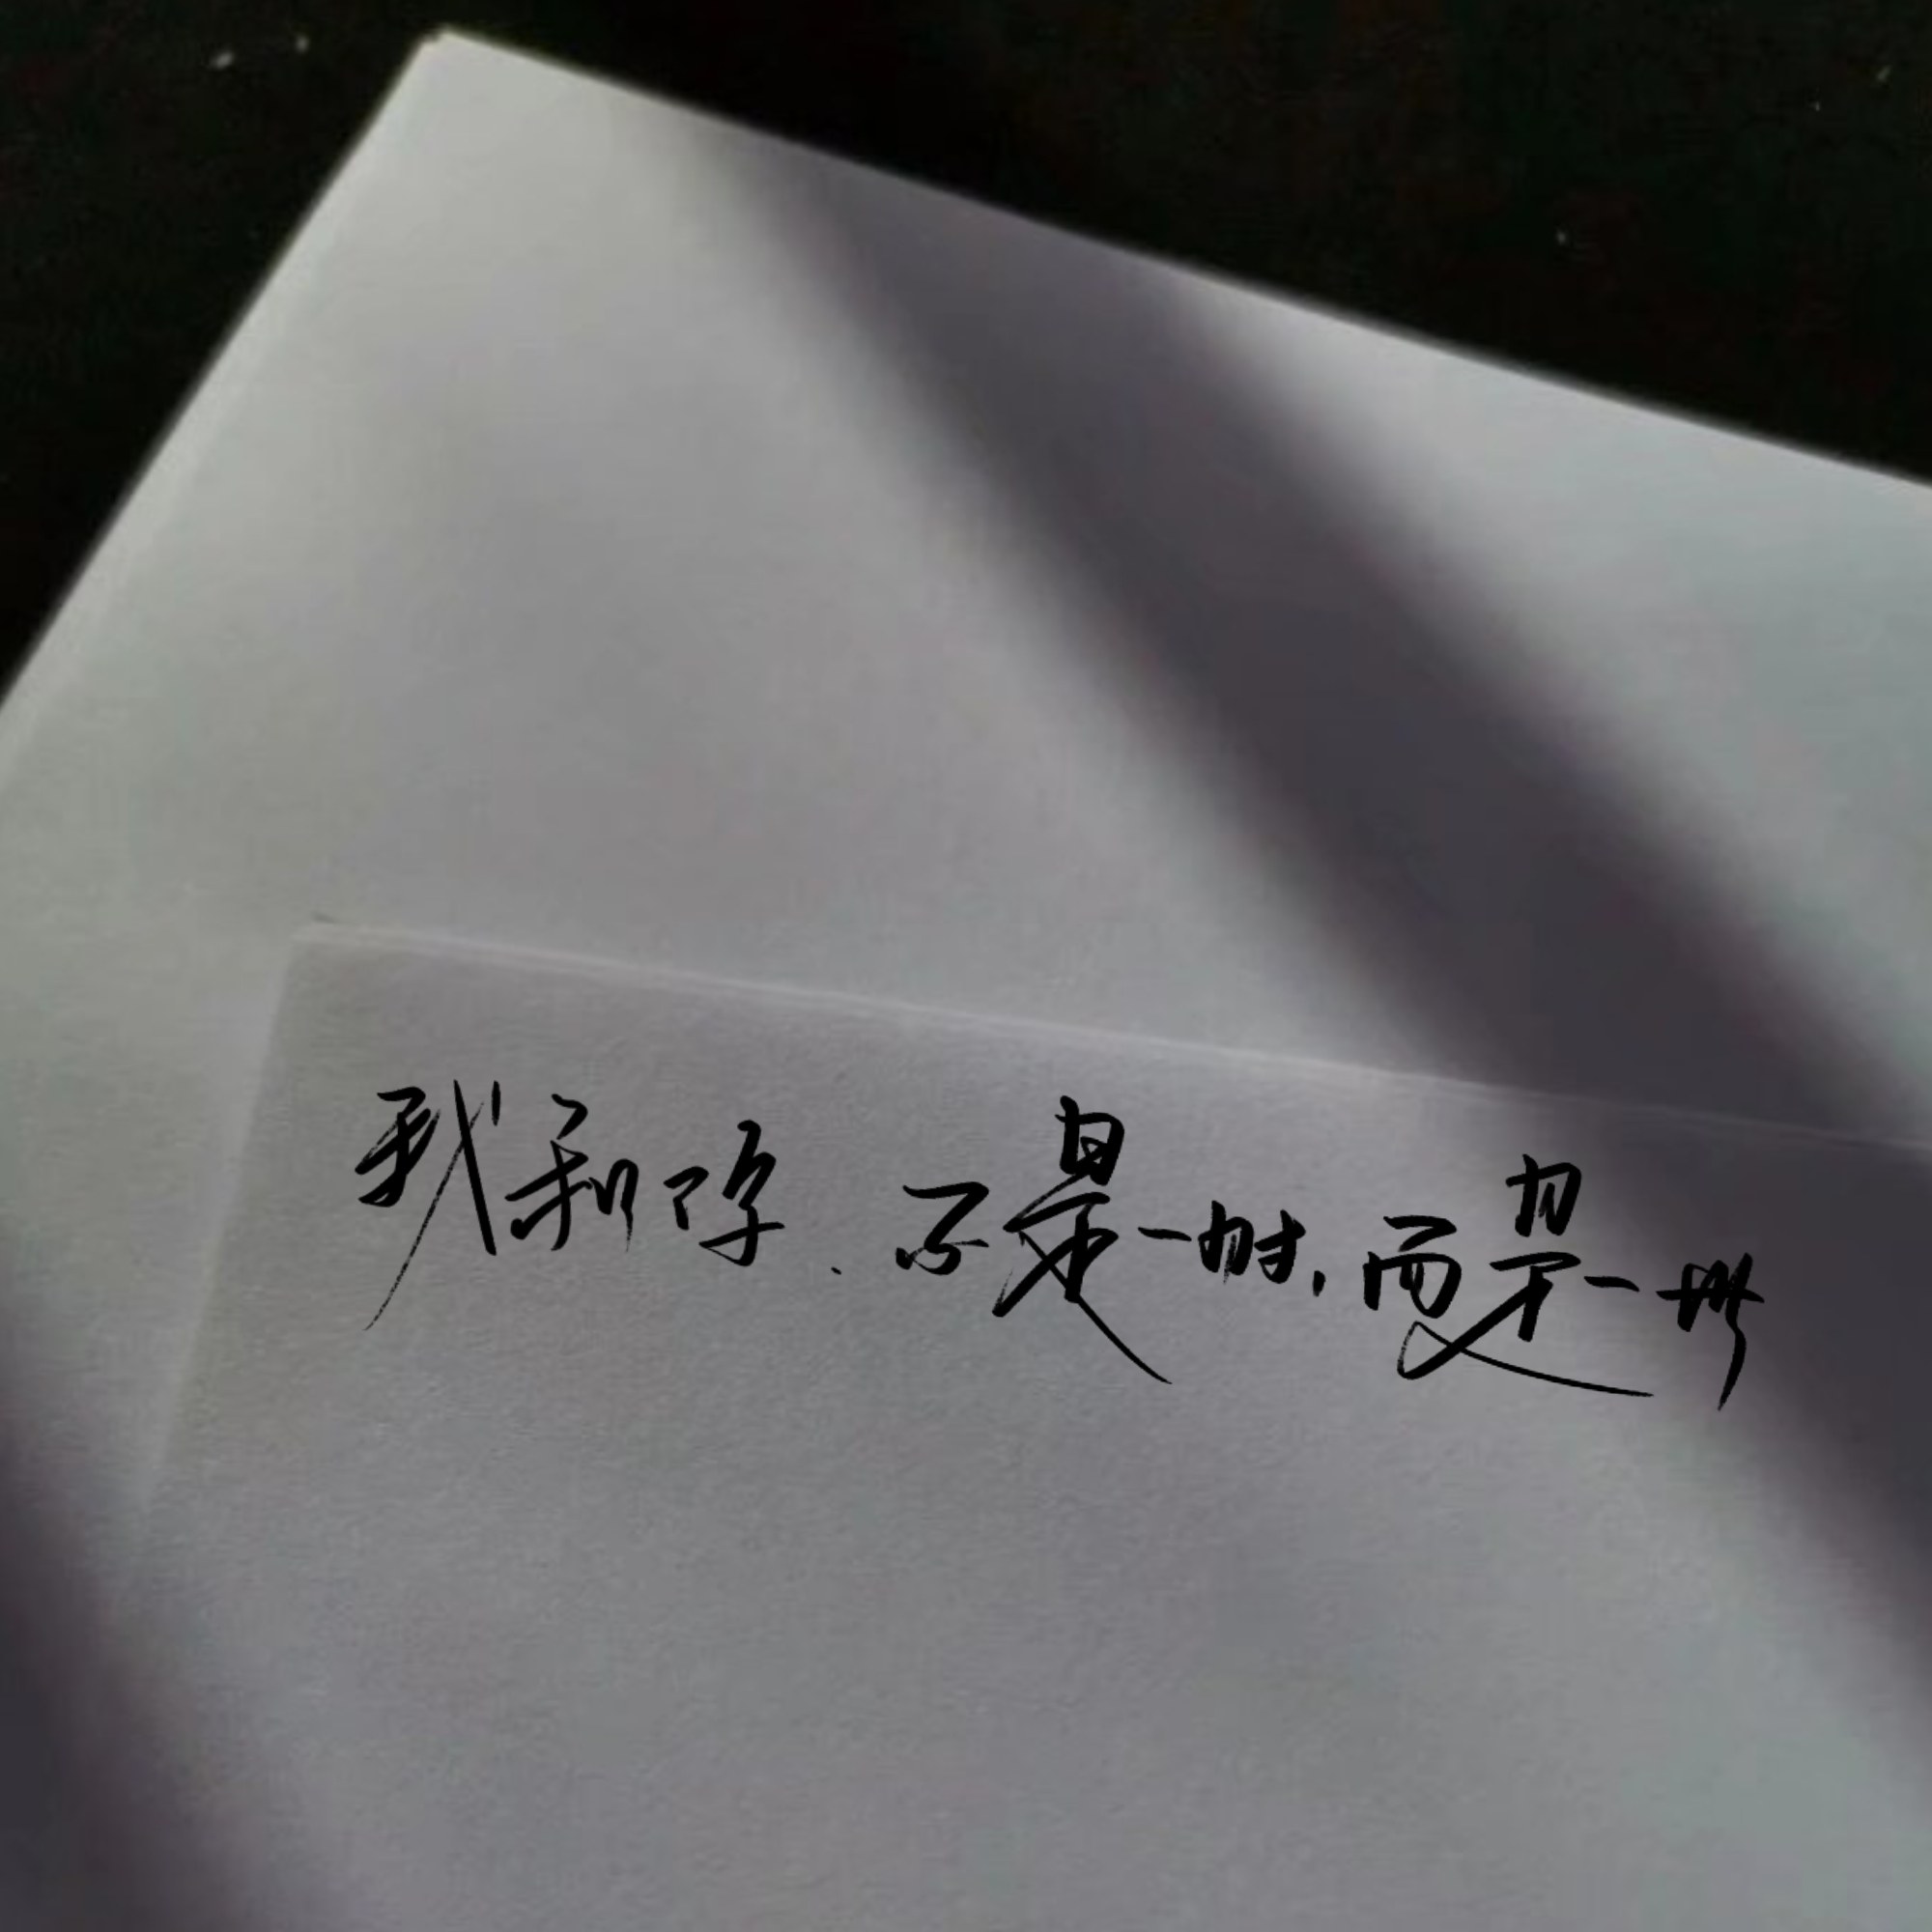 我和你.不是一时,而是一世